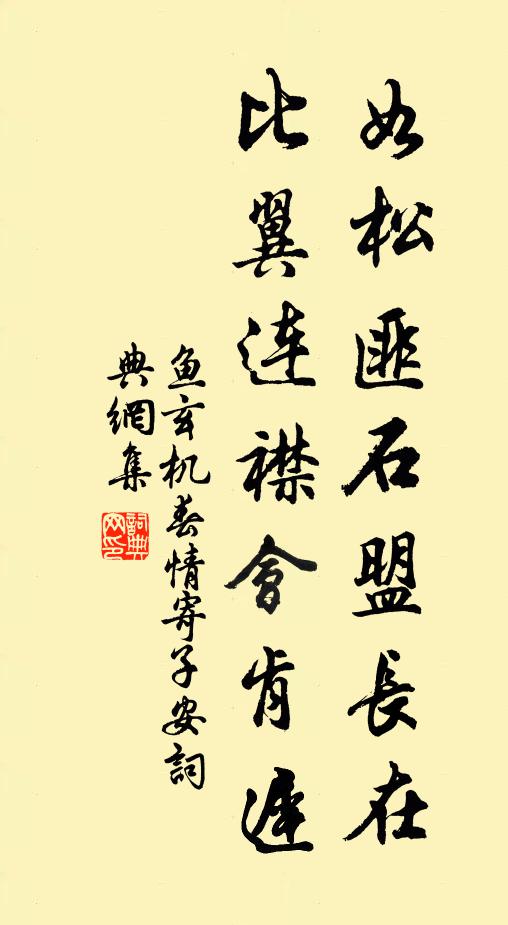 如松匪石盟長在
比翼連襟會肯遲
魚玄机春情寄子安詞
典網集
詞典网印